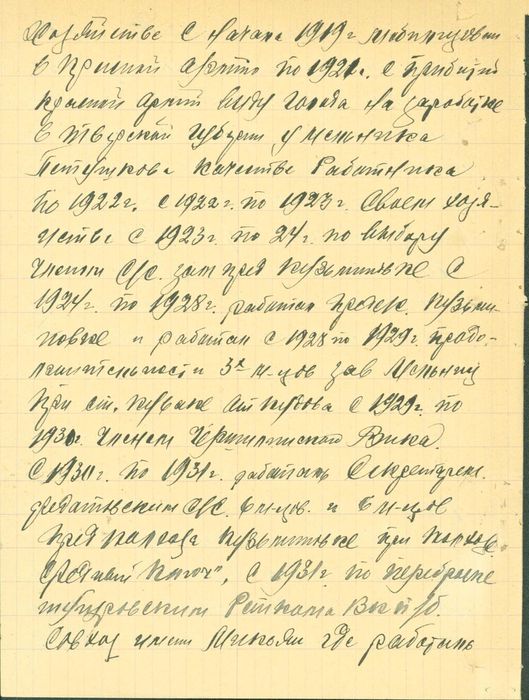 Хозяйстве с начала 1919 г мобилизован
в красной армию по 1921 г. с прибытия
красной армии виду голода на заработке
в Тверской губерни у мельника
Петушкова качестве работника
по 1922 г. с 1922 г. по 1923 г. своем хозя-
истве с 1923 г. по 24 г. по выбору
членом С/С. зам пред Кузьминовке с
1924 г. по 1928 г. работал пред. Кузьми-
новке и работал с 1928 по 1929 г. продо-
лжительности 3х м-цов зав мельниц
при ст. с 1929 г. по
1930 г. членом Вика.
с 1930 г. по 1931 г. работать Секретарем
С/С. 6 м-цов. и 6 м-цов
Кузьминовке при колхозе
"Красный", с 1931 г. по переброске
Райкома ВКП/б.
Совхоз имени Микоян где работать